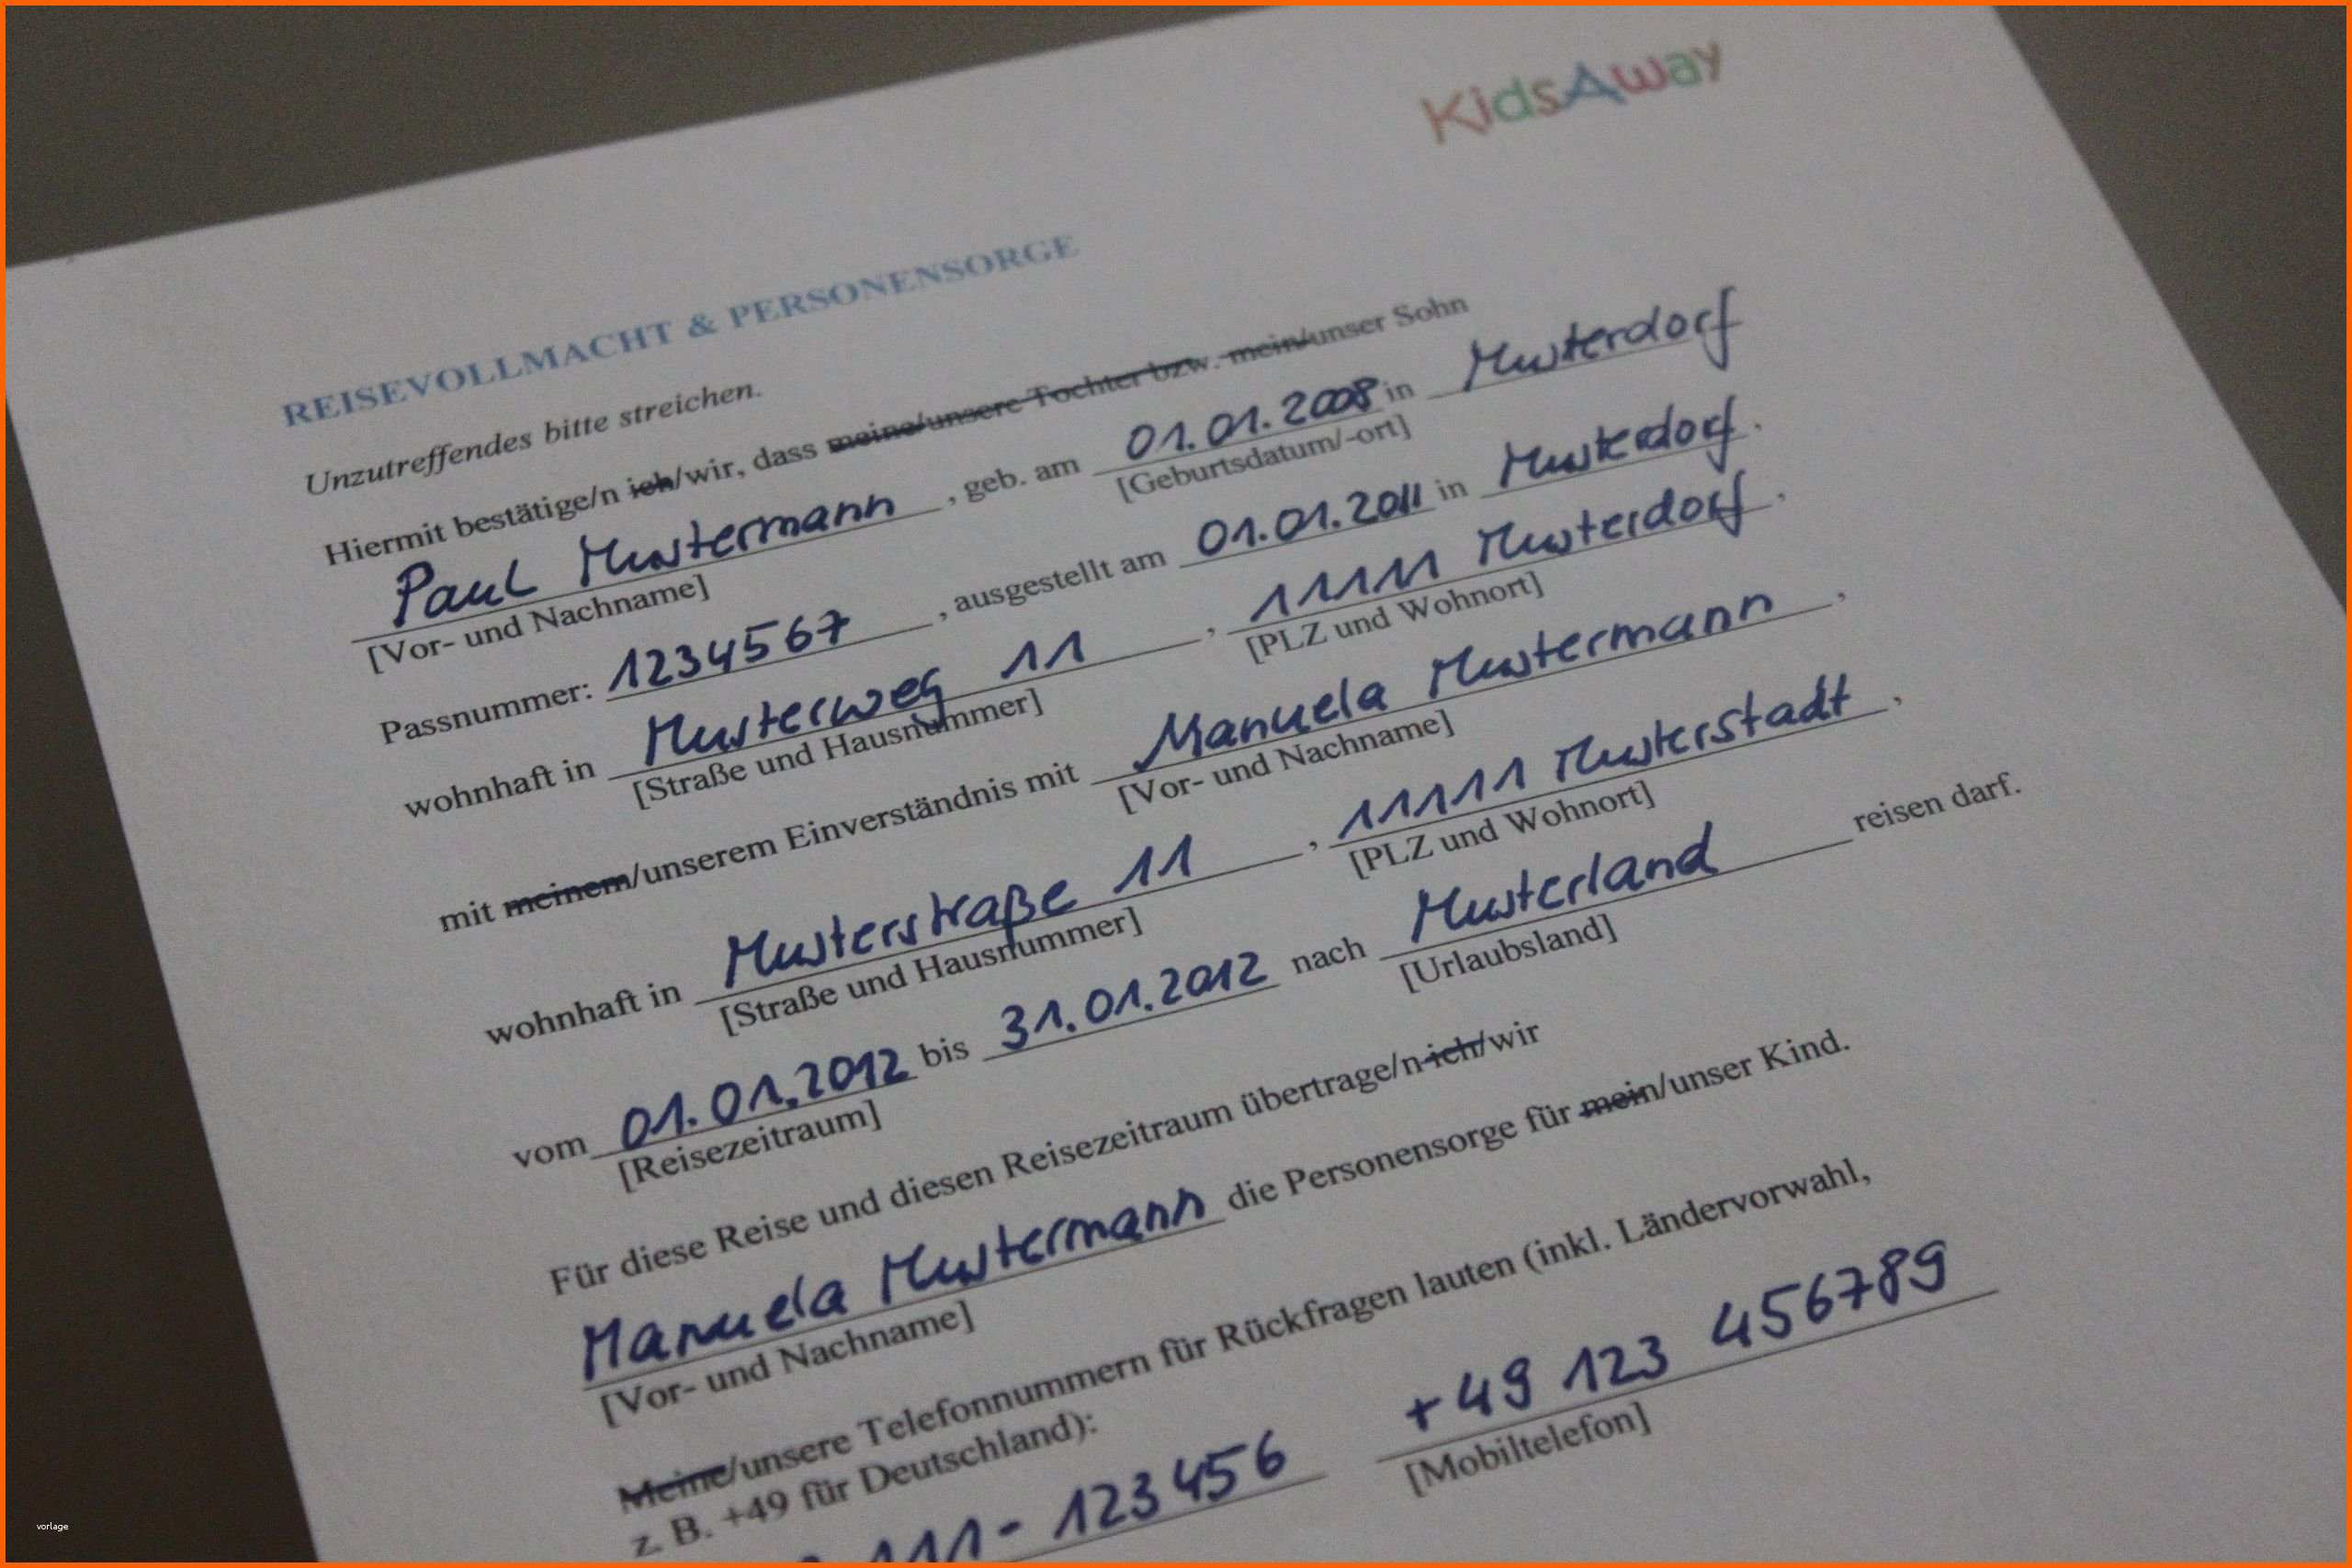 KidsAway
REISEVOLLMACHT & PERSONENSORGE
Unzutreffendes bitte streichen.
Hiermit bestätige/n ich/wir, dass meine/unsere Tochter bzw. mein/unser Sohn
Paul Mustermann, geb. am 01.01.2008 in Musterdorf
[Vor- und Nachname] [Geburtsdatum/-ort]
Passnummer: 1234567, ausgestellt am 01.01.2011 in Musterdorf.
wohnhaft in Musterweg 11, 11111 Musterdorf,
[Straße und Hausnummer] [PLZ und Wohnort]
mit meinem/unserem Einverständnis mit Manuela Mustermann,
[Vor- und Nachname]
wohnhaft in Musterstraße 11, 11111 Musterstadt,
[Straße und Hausnummer] [PLZ und Wohnort]
vom 01.01.2012 bis 31.01.2012 nach Musterland reisen darf.
[Reisezeitraum] [Urlaubsland]
Für diese Reise und diesen Reisezeitraum übertrage/n ich/wir
Manuela Mustermann die Personensorge für mein/unser Kind.
[Vor- und Nachname]
Meine/unsere Telefonnummern für Rückfragen lauten (inkl. Ländervorwahl,
z. B. +49 für Deutschland):
123456 +49 123 456789
[Mobiltelefon]
vorlage